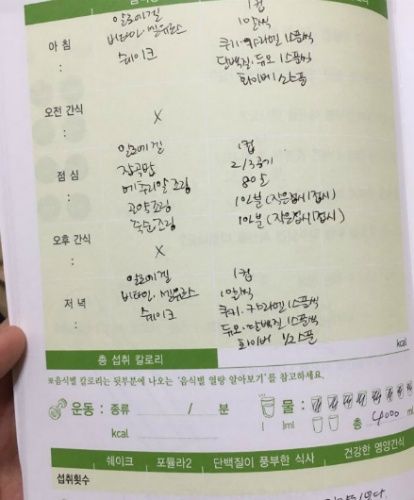 아 침
:
알로에겔 1컵
비타민·셀유로스 1알씩
쉐이크 쿠키·카라멜 1스푼씩
단백질·듀오 1스푼씩
화이버 1/2스푼
오전 간식
:
X
점 심
:
알로에겔 1컵
잡곡밥 2/3공기
메추리알조림 8알
곤약조림 1인분(작은접시1접시)
죽순조림 1인분(작은접시1접시)
오후 간식
:
X
저 녁
:
알로에겔 1컵
비타민·셀유로스 1알씩
쉐이크 쿠키·카라멜 1스푼씩
듀오·단백질 1스푼씩
화이버 1/2스푼
총 섭취 칼로리 kcal
※음식별 칼로리는 뒷부분에 나오는 '음식별 열량 알아보기'를 참고하세요.
운동 : 종류 / 분 물 :
kcal ( )ml 총 4000 ml
쉐이크 포뮬라2 단백질이 풍부한 식사 건강한 영양간식
섭취횟수